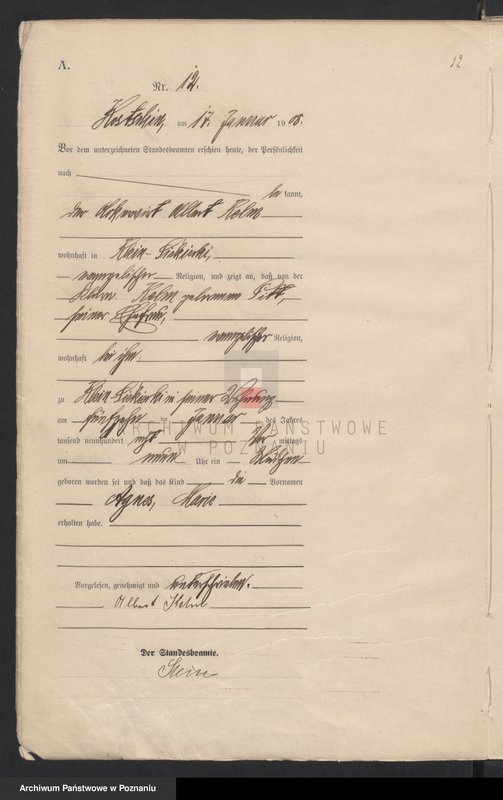 A.
12.
Nr. 12.
Kostschin, am 17. Januar 1908.
Vor dem unterzeichneten Standesbeamten erschien heute, der Persönlichkeit
nach
be kannt,
der Ackerwirt Albert
wohnhaft in Klein-Siekierki,
evangelischer Religion, und zeigt an, daß von der
geborenen
seiner Ehefrau,
evangelischer Religion,
wohnhaft bei ihm,
zu Klein-Siekierki in seiner Wohnung
am fünfzehn ten Januar des Jahres
tausend neunhundert acht Vor mittags
um neun Uhr ein Mädchen
geboren worden sei und daß das Kind die Vornamen
Agnes, Marie
erhalten habe.
Vorgelesen, genehmigt und unterschrieben.
Albert
Der Standesbeamte.
Stein
ARCHIWUM PAŃSTWOWE
W POZNANIU
Archiwum Państwowe w Poznaniu